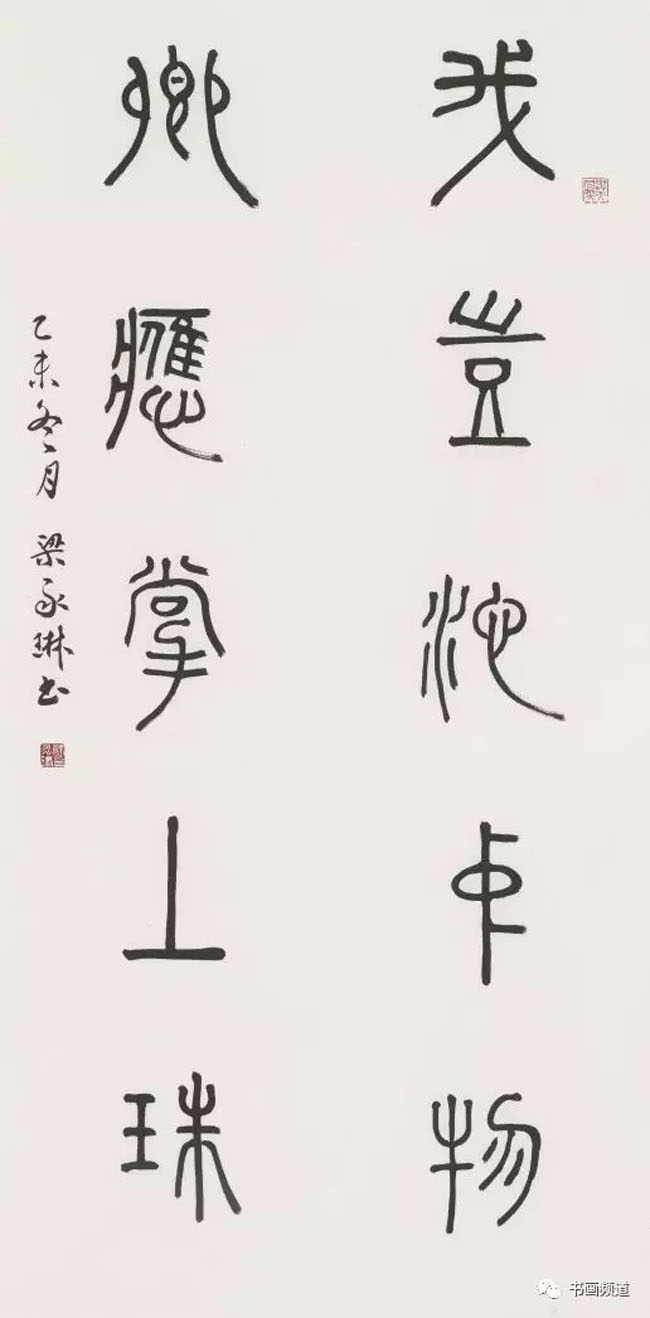 我豈池中物
卿應掌上珠
乙未冬月 梁永琳书
书画频道